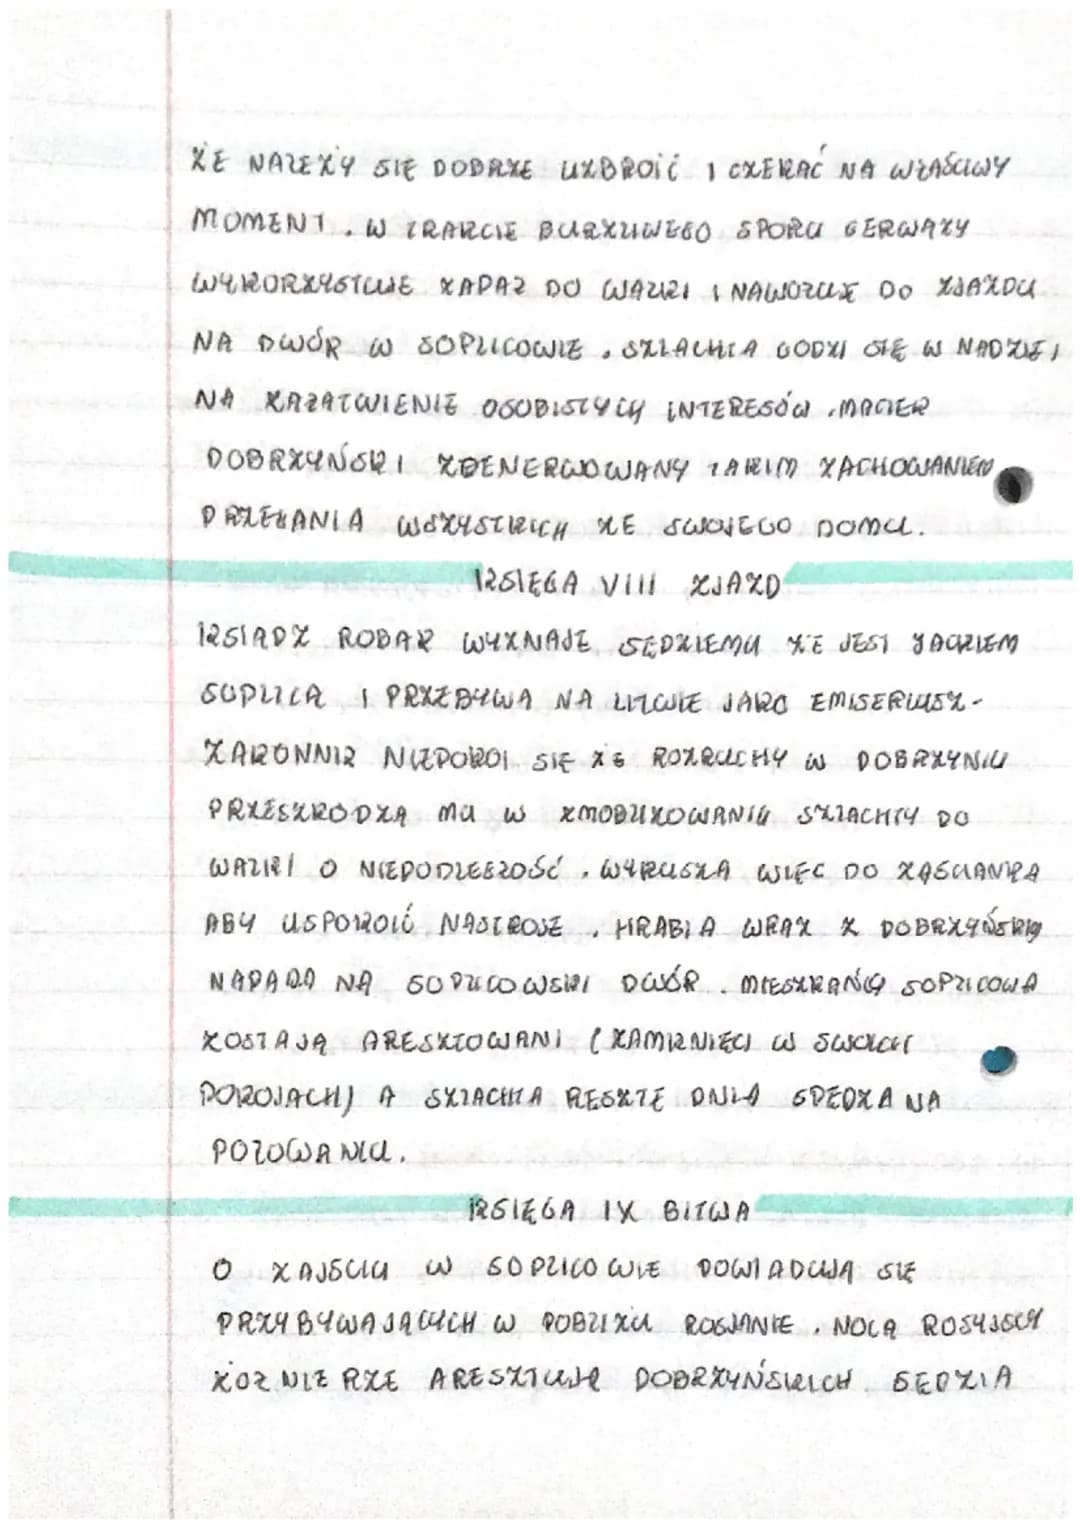 ŻE NALEŻY SIĘ DOBRZE UZBROIĆ I CZEKAĆ NA WŁAŚCIWY
MOMENT. W TRAKCIE BURZLIWEGO SPORU GERWAZY
WYKORZYSTUJE ZAPAŁ DO WALKI I NAWOŁUJE DO ZJAZDU
NA DWÓR W SOPLICOWIE. SZLACHTA GODZI SIĘ W NADZIEI
NA ZAŁATWIENIE OSOBISTYCH INTERESÓW. MACIEK
DOBRZYŃSKI ZDENERWOWANY TAKIM ZACHOWANIEM
PRZEGANIA WSZYSTKICH ZE SWOJEGO DOMU.
KSIĘGA VIII ZJAZD
KSIĄDZ ROBAK WYZNAJE SĘDZIEMU ŻE JEST JACKIEM
SOPLICĄ I PRZEBYWA NA LITWIE JAKO EMISERIUSZ-
ZAKONNIK NIEPOKOI SIĘ ŻE ROZRUCHY W DOBRZYNIU
PRZESZKODZĄ MU W ZMOBILIZOWANIU SZLACHTY DO
WALKI O NIEPODLEGŁOŚĆ. WYRUSZA WIĘC DO ZAŚCIANKA
ABY USPOKOIĆ NASTROJE. HRABIA WRAZ Z DOBRZYŃSKIM
NAPADA NA SOPLICOWSKI DWÓR. MIESZKAŃCY SOPLICOWA
ZOSTAJĄ ARESZTOWANI (ZAMKNIĘCI W SWOICH
POKOJACH) A SZLACHTA RESZTĘ DNIA SPĘDZA NA
POLOWANIU.
KSIĘGA IX BITWA
O ZAJŚCIU W SOPLICOWIE DOWIADUJĄ SIĘ
PRZYBYWAJĄCYCH W POBLIŻU ROSJANIE. NOCĄ ROSYJSCY
ŻOŁNIERZE ARESZTUJĄ DOBRZYŃSKICH SĘDZIA